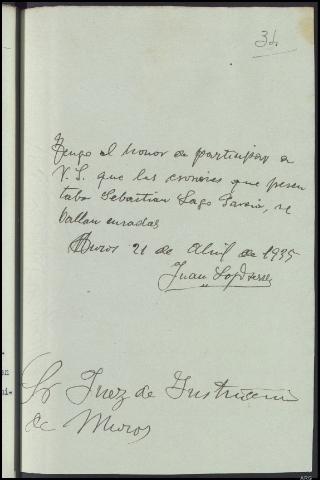 34
Tengo el honor de participar a
V. S. que las erosiones que presen
taba Sebastian Lago Garcia, se
hallan curadas
Muros 21 de Abril de 1935
Juan
Sr Juez de Instrucción
de Muros